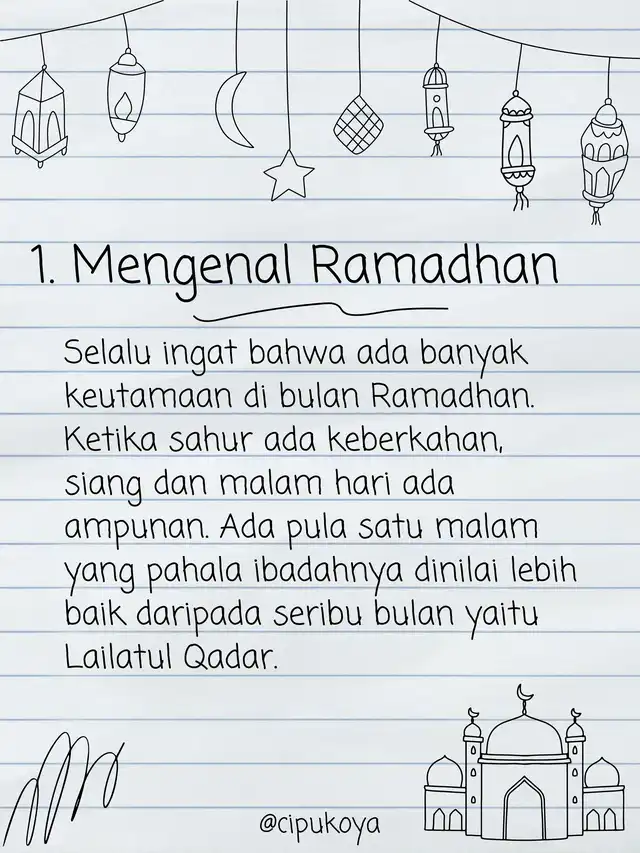 1. Mengenal Ramadhan
Selalu ingat bahwa ada banyak
keutamaan di bulan Ramadhan.
Ketika sahur ada keberkahan,
siang dan malam hari ada
ampunan. Ada pula satu malam
yang pahala ibadahnya dinilai lebih
baik daripada seribu bulan yaitu
Lailatul Qadar.
@cipukoya